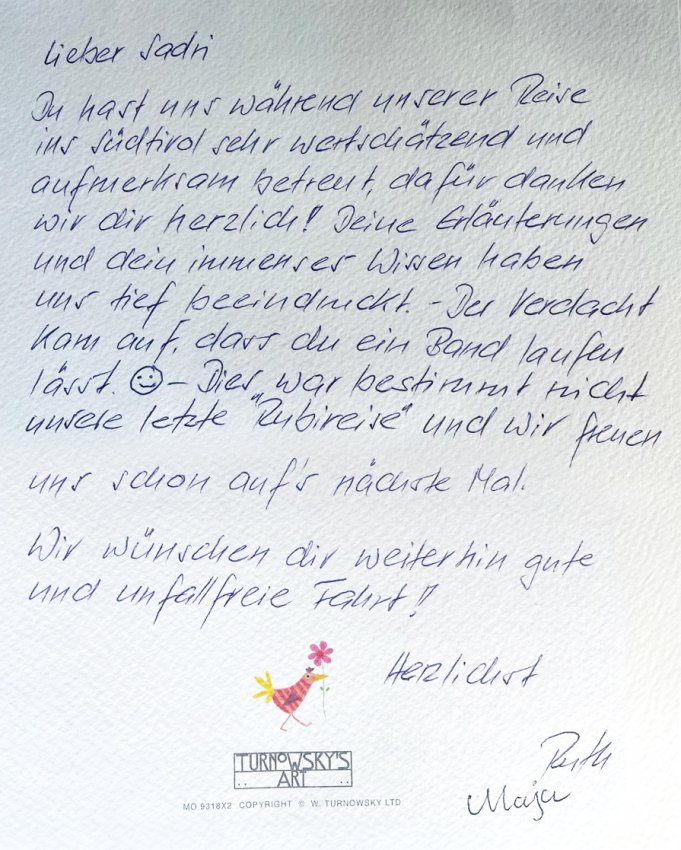 Lieber Sadri
Du hast uns während unserer Reise
ins Südtirol sehr wertschätzend und
aufmerksam betreut, dafür danken
wir dir herzlich! Deine Erläuterungen
und dein immenses Wissen haben
uns tief beeindruckt. - Der Verdacht
kam auf, dass du ein Band laufen
lässt. ☺ - Dies war bestimmt nicht
unsere letzte "Rubireise" und wir freuen
uns schon auf's nächste Mal.
Wir wünschen dir weiterhin gute
und unfallfreie Fahrt!
Herzlichst
Ruth
Maja
TURNOWSKY'S
ART
MO 9318X2 COPYRIGHT © W. TURNOWSKY LTD